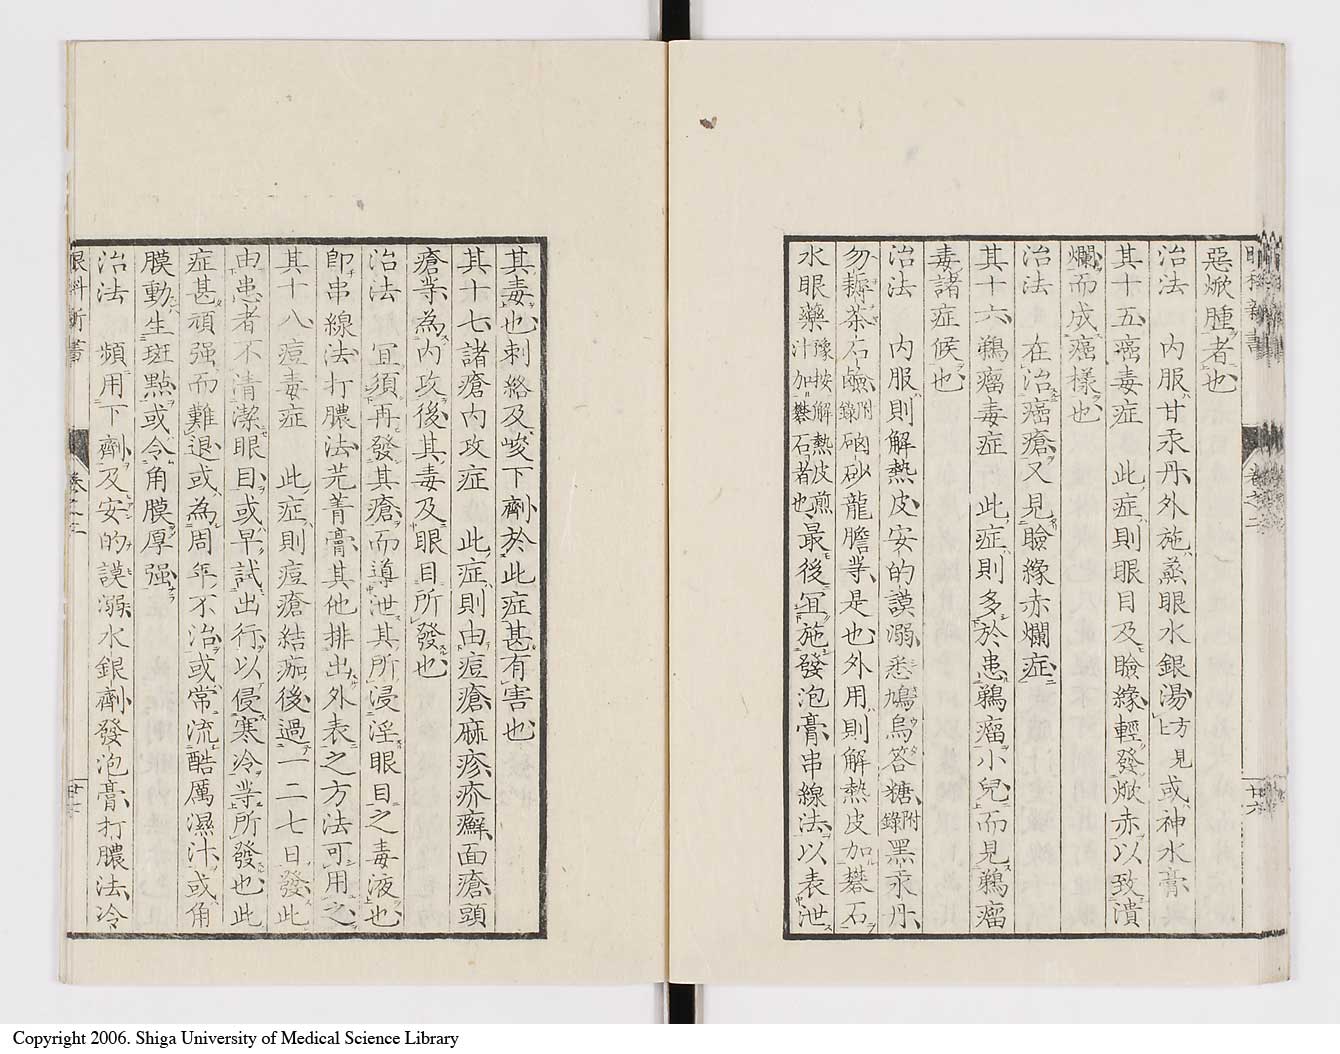 眼科新書
卷之二
廿六
惡焮腫者也
治法　内服甘汞丹外施蒸眼水銀湯方見上或神水膏
其十五痞毒症　此症則眼目及瞼緣輕發焮赤以致潰
爛而成痞樣也
治法　在治痞瘡又見瞼緣赤爛症
其十六鵝瘤毒症　此症則多於患鵝瘤小兒而見鵝瘤
毒諸症候也
治法　内服則解熱皮安的謨溺悉鳩烏答糖附錄黑汞丹
勿耨茶石鹼附錄硇砂龍膽等是也外用則解熱皮加礬石
水眼藥豫按解熱皮煎汁加礬石者也最後宜施發泡膏串線法以表泄
其毒也刺絡及峻下劑於此症甚有害也
其十七諸瘡内攻症　此症則由痘瘡麻疹疥癬面瘡頭
瘡等為内攻後其毒及眼目所發也
治法　宜須再發其瘡而導泄其所浸淫眼目之毒液也
卽串線法打膿法芫菁膏其他排出外表之方法可用之
其十八痘毒症　此症則痘瘡結痂後過一二七日發此
由患者不清潔眼目或早試出行以侵寒冷等所發也此
症甚頑强而難退或為周年不治或常流酷厲濕汁或角
膜動生斑點或令角膜厚强
治法　頻用下劑及安的謨溺水銀劑發泡膏打膿法冷
眼科新書
卷之二
廿七
Copyright 2006. Shiga University of Medical Science Library